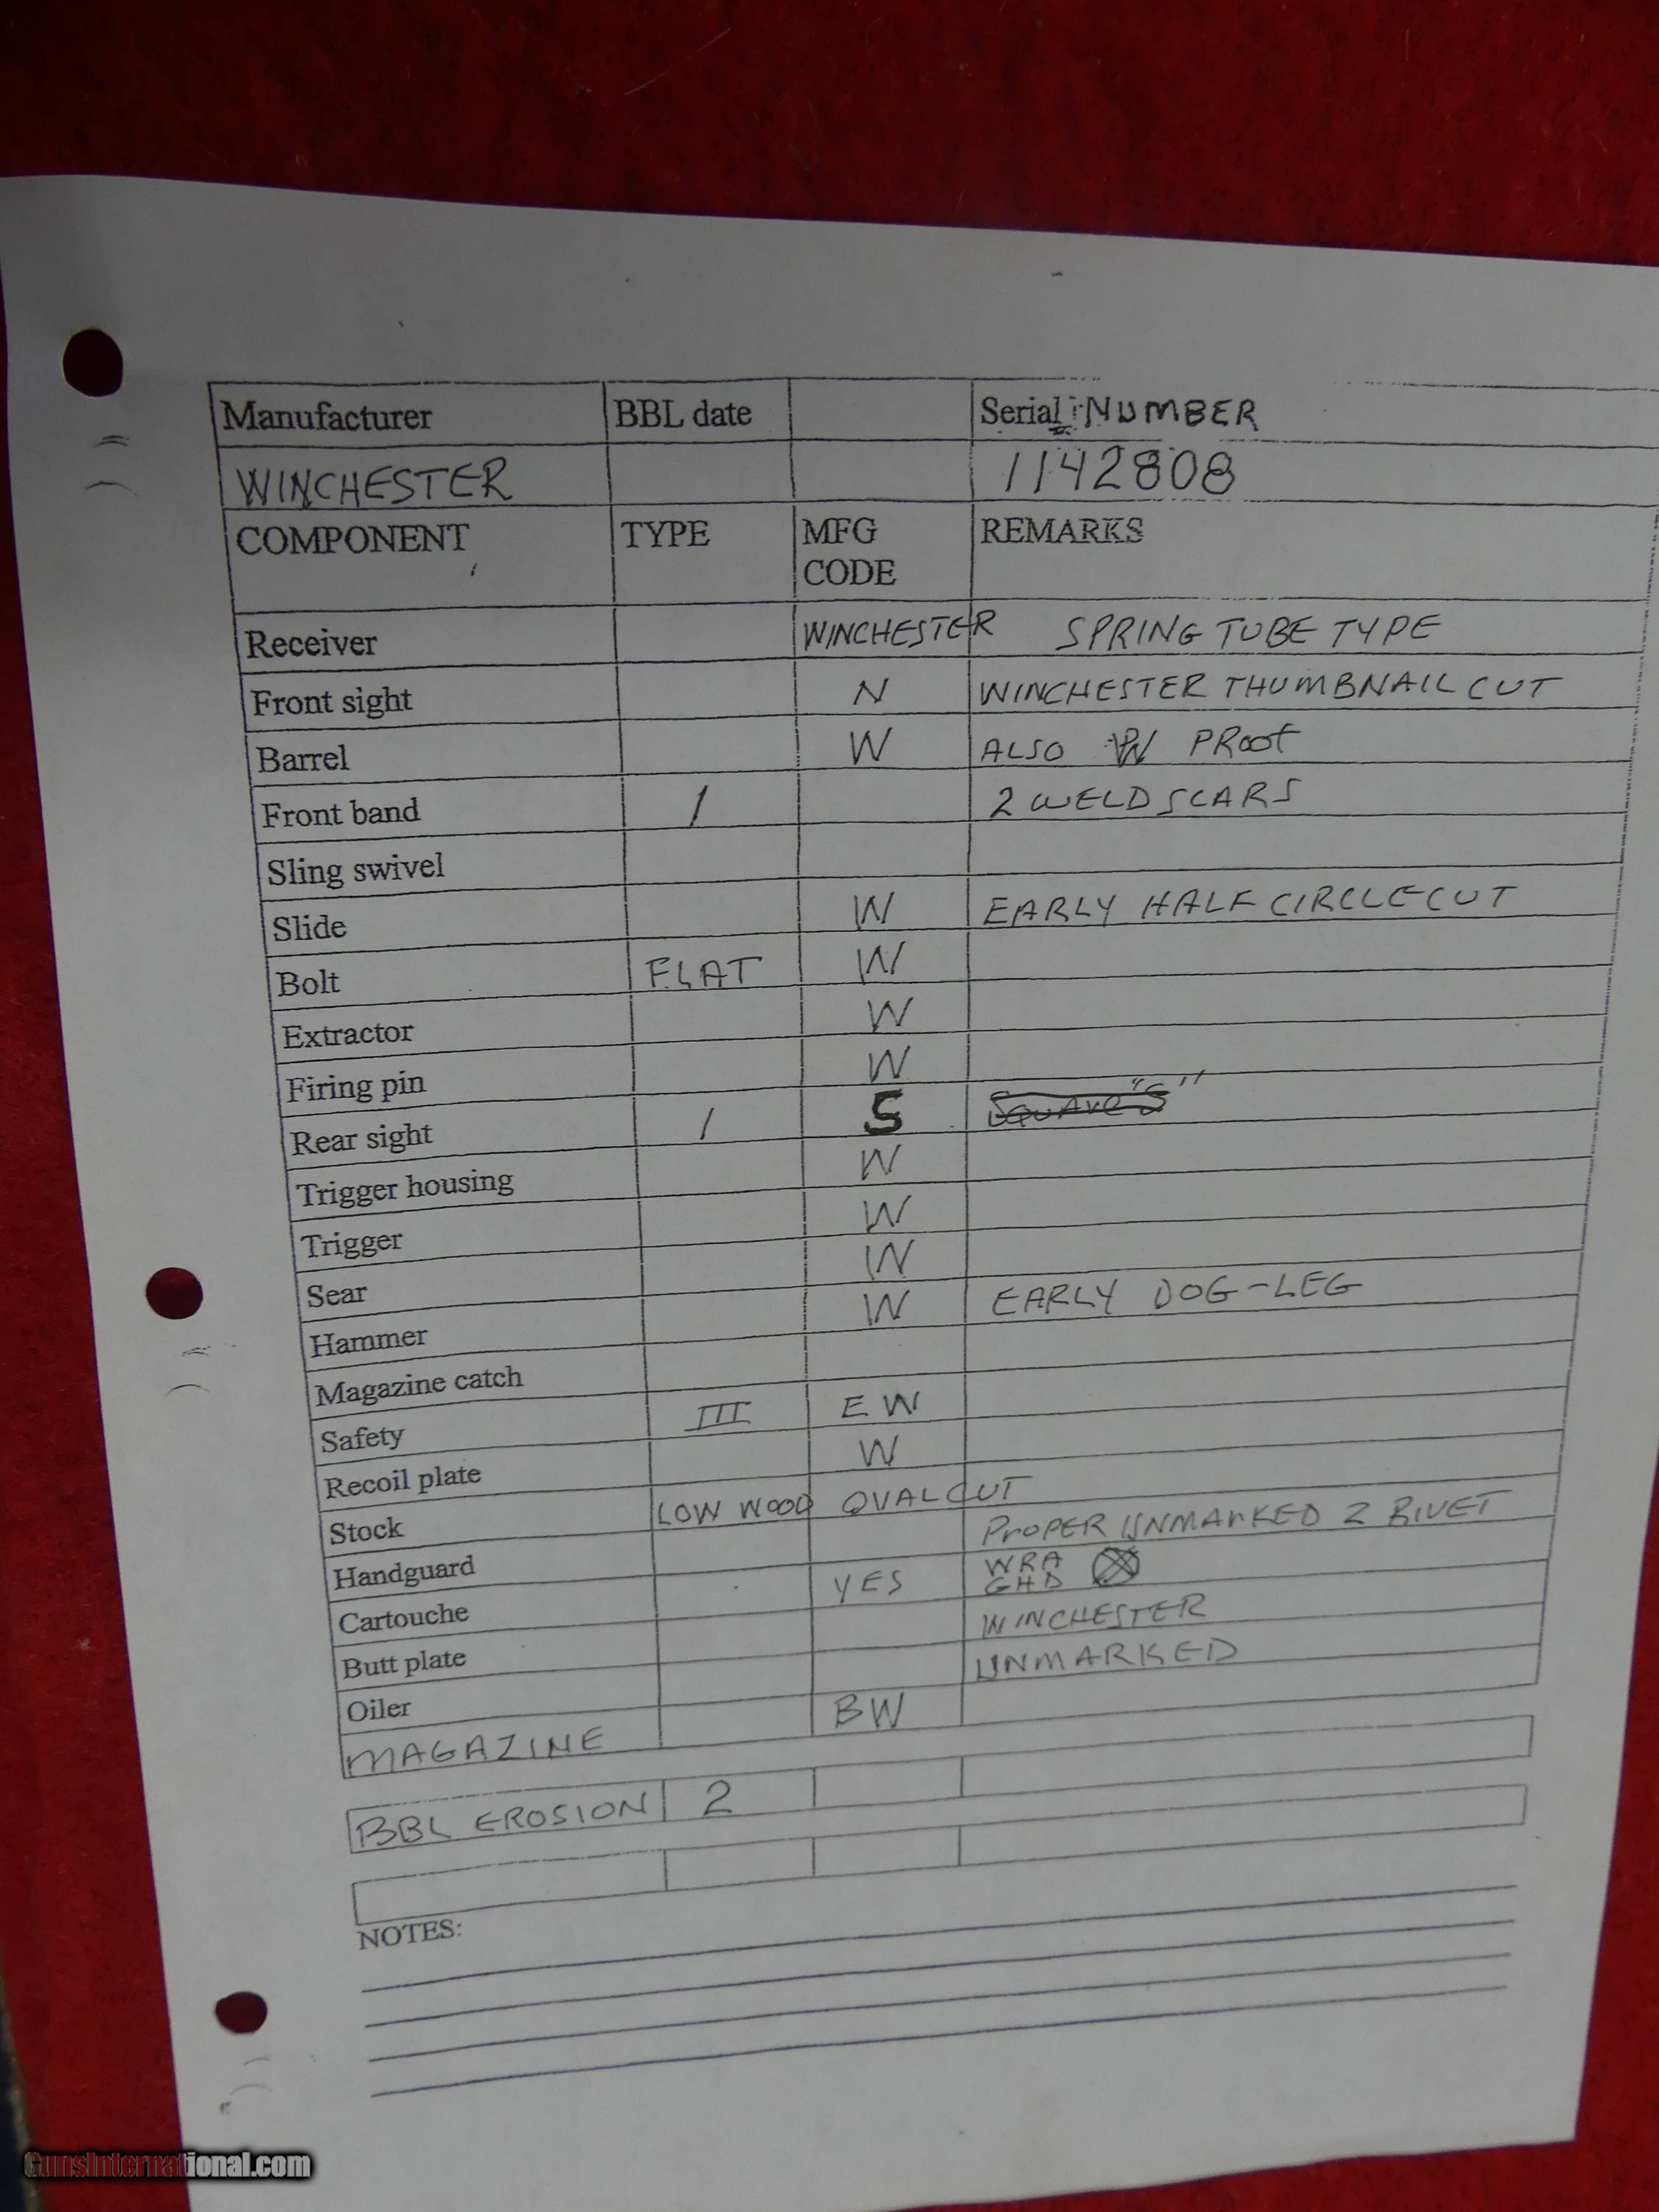 Manufacturer BBL date Serial NUMBER
WINCHESTER 1142808
COMPONENT TYPE MFG CODE REMARKS
Receiver WINCHESTER SPRING TUBE TYPE
Front sight N WINCHESTER THUMBNAIL CUT
Barrel W ALSO W PROOF
Front band 1 2 WELD SCARS
Sling swivel
Slide W EARLY HALF CIRCLE CUT
Bolt FLAT W
Extractor W
Firing pin W
Rear sight 1 S Square "S"
Trigger housing W
Trigger W
Sear W
Hammer W EARLY DOG-LEG
Magazine catch
Safety III EW
Recoil plate W
Stock LOW WOOD OVAL CUT
Handguard PROPER UNMARKED 2 RIVET
Cartouche YES WRA GHD
Butt plate WINCHESTER
Oiler UNMARKED
MAGAZINE BW
BBL EROSION 2
NOTES:
GunsInternational.com